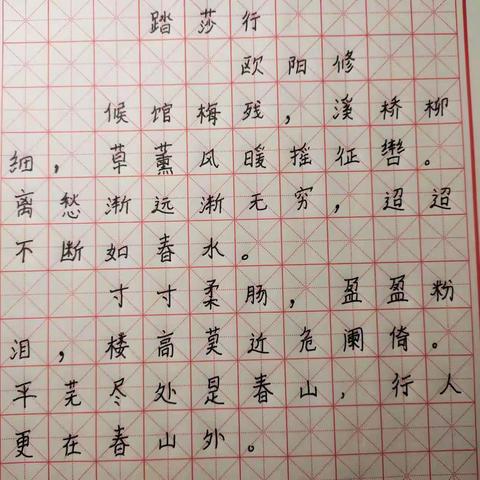 踏莎行
欧阳修
候馆梅残，溪桥柳
细，草薰风暖摇征辔。
离愁渐远渐无穷，迢迢
不断如春水。
寸寸柔肠，盈盈粉
泪，楼高莫近危阑倚。
平芜尽处是春山，行人
更在春山外。